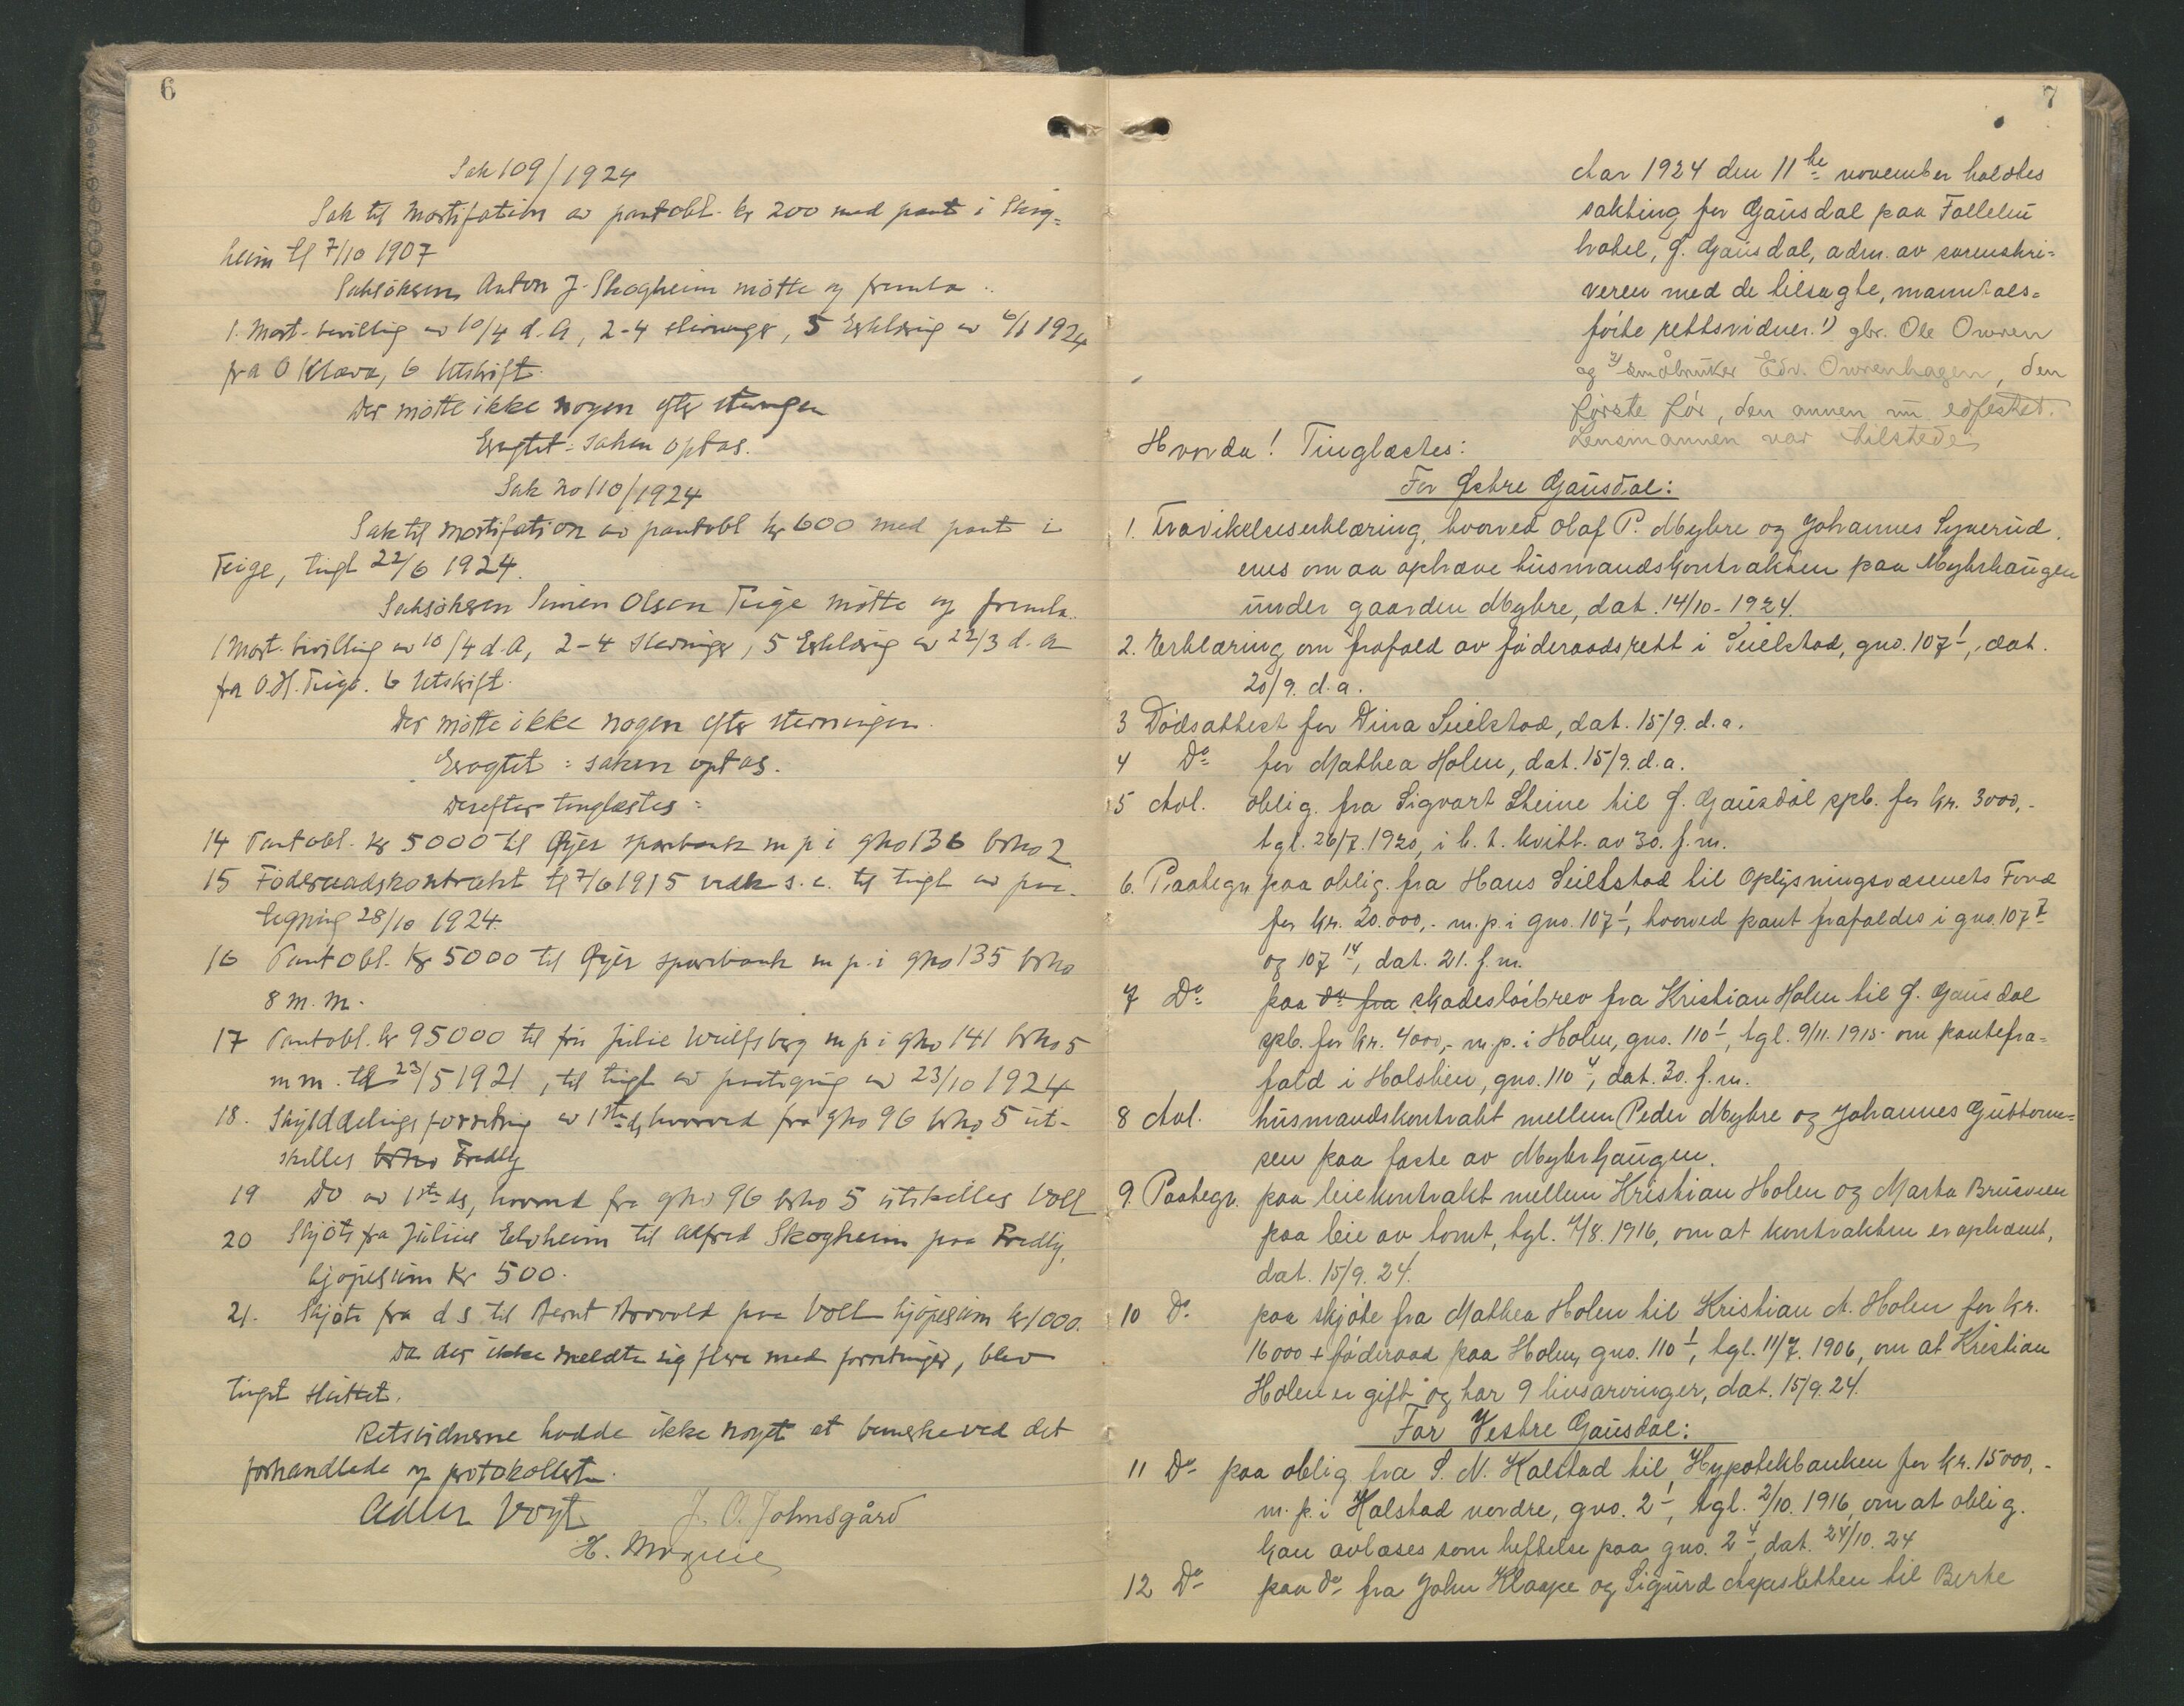 6
Sak 109/1924
Sak til mortifation av pantobl. kr 200 med pant i Skog-
heim tl 7/10 1907
Saksökeren Anton J. Skogheim mötte og fremla ..
1. Mort. bevilling av 10/4 d.A, 2-4 stevninger, 5 Erklæring av 6/1 1924
fra O Klæva, 6 Utskrift.
Der mötte ikke nogen efter stevningen
Eragtet: saken optas.
Sak no 110/1924
Sak til mortifation av pantobl kr 600 med pant i
Teige, tingl 22/6 1924.
Saksökeren Simen Olsen Teige mötte og fremla.
1 Mort. bevilling av 10/4 d.A, 2-4 stevninger, 5 Erklæring av 22/3 d.a
fra O.H. Teige. 6 Utskrift.
Der mötte ikke nogen efter stevningen.
Eragtet: saken optas.
Derefter tinglæstes:
14 Pantobl. kr 5000 tl Øyer sparbank m p i gno 136 brno 2
15 Föderaadskontrakt tl 7/6 1915 vedk s. e. til tingl av paa-
tegning 28/10 1924.
16 Pantobl. kr 5000 tl Øyer sparebank m p. i gno 135 brno
8 m. m.
17 Pantobl. kr 95000 tl fru Julie Wülfsberg m p i gno 141 brno 5
m m. tl 23/5 1921, til tingl av paategning av 23/10 1924
18. Skylddelingsforretning av 1ste ds, hvorved fra gno 96 brno 5 ut-
skilles brno Fredly
19 Do av 1ste ds, hvorved fra gno 96 brno 5 utskilles Voll
20 Skjöte fra Julius Elvheim til Alfred Skogheim paa Fredly,
kjöpesum kr 500.
21. Skjöte fra d s til Bernt paa Voll kjöpesum kr 1000.
Da der ikke meldte sig flere med forretninger, blev
tinget sluttet.
Retsvidnerne hadde ikke noget at bemerke ved det
forhandlede og protokollerte.
Adler Vogt J. O. Johnsgård
H.
7
Aar 1924 den 11te november holdtes
sakting for Gausdal paa Follebu
hotel, Ö. Gausdal, adm. av sorenskri-
veren med de tilsagte, manntals-
förte rettsvidner. 1) gbr. Ole Owren
og 2) småbruker Edv. Owrenhagen, den
første før, den annen nu edfestet.
Lensmannen var tilstede
Hvorda! Tinglæstes:
For Östre Gausdal:
1. Fravikelseserklæring, hvorved Olaf P. Myhre og Johannes Synerud
enes om aa ophæve husmandskontrakten paa Myhrhaugen
under gaarden Myhre, dat. 14/10-1924.
2. Erklæring om frafald av föderaadsrett i Suelstad, gno. 107 1, dat.
20/9. d.a.
3 Dödsattest for Dina Suelstad, dat. 15/9. d.a.
4 Do for Mathea Holen, dat. 15/9. d.a.
5 Avl. oblig. fra Sigvart Steine til Ö. Gausdal spb. for kr. 3000,-
tgl. 26/7. 1920, i h. t. kvitt. av 30. f.m.
6. Paategn paa oblig. fra Hans Suelstad til Oplysningsvæsenets Fond
for kr. 20.000,- m.p. i gno. 107 1, hvorved pant frafaldes i gno. 107 7
og 107 14, dat. 21. f.m.
7 Do paa do fra skadeslösbrev fra Kristian Holen til Ö. Gausdal
spb. for kr. 4000,- m.p. i Holen, gno. 110 1, tgl. 9/11. 1915 om pantefra-
fald i Holslien, gno. 110 4, dat. 30. f.m.
8 Avl. husmandskontrakt mellem Peder Myhre og Johannes Guttorm-
sen paa feste av Myhrhaugen.
9. Paategn. paa leiekontrakt mellem Kristian Holen og Marta Brusveen
paa leie av tomt, tgl. 4/8. 1916, om at kontrakten er ophævet,
dat. 15/9. 24.
10 Do paa skjöte fra Mathea Holen til Kristian A. Holen for kr.
16000 + föderaad paa Holen, gno. 110 1, tgl. 11/7. 1906, om at Kristian
Holen er gift og har 9 livsarvinger, dat. 15/9. 24.
For Vestre Gausdal:
11 Do paa oblig. fra S. N. Kalstad til Hypotekbanken for kr. 15000,-
m. p. i Kalstad nordre, gno. 2 1, tgl. 2/10. 1916, om at oblig.
kan avlæses som heftelse paa gno. 2 4, dat. 24/10. 24
12 Do paa do fra John Klaape og Sigurd Aspesletten til Berte